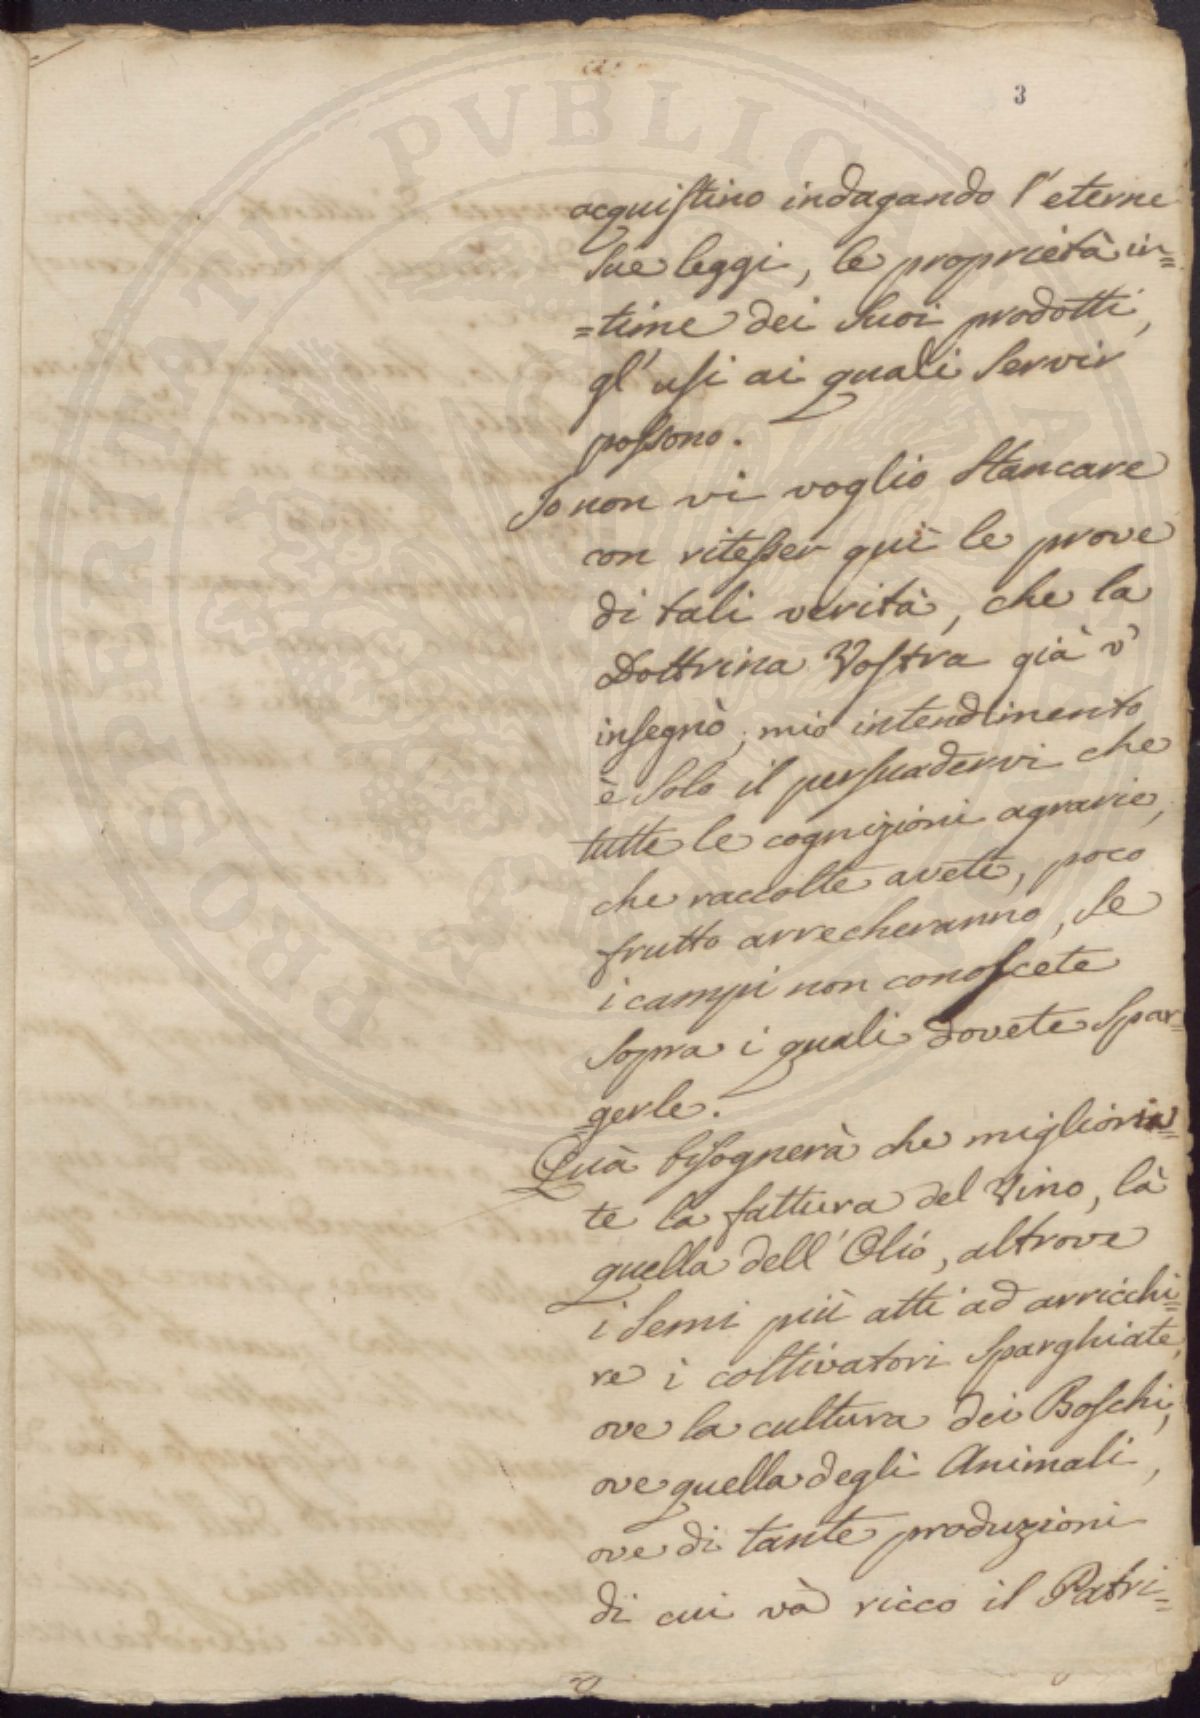 3
acquistino indagando l'eterne
sue leggi, le proprietà in=
=time dei suoi prodotti,
gl'usi ai quali servir
possono.
Io non vi voglio stancare
con ritesser quì le prove
di tali verità, che la
Dottrina Vostra già v'
insegnò; mio intendimento
è solo il persuadervi che
tutte le cognizioni agrarie,
che raccolte avete, poco
frutto arrecheranno, se
i campi non conoscete
sopra i quali dovete spar=
=gerle.
Quà bisognerà che miglioria=
te la fattura del Vino, là
quella dell'Olio, altrove
i semi più atti ad arricchi=
re i coltivatori sparghiate,
ove la cultura dei Boschi,
ove quella degli Animali,
ove di tante produzioni
di cui và ricco il Patri=
PROSPERITATI PVBLICAE AVGENDAE